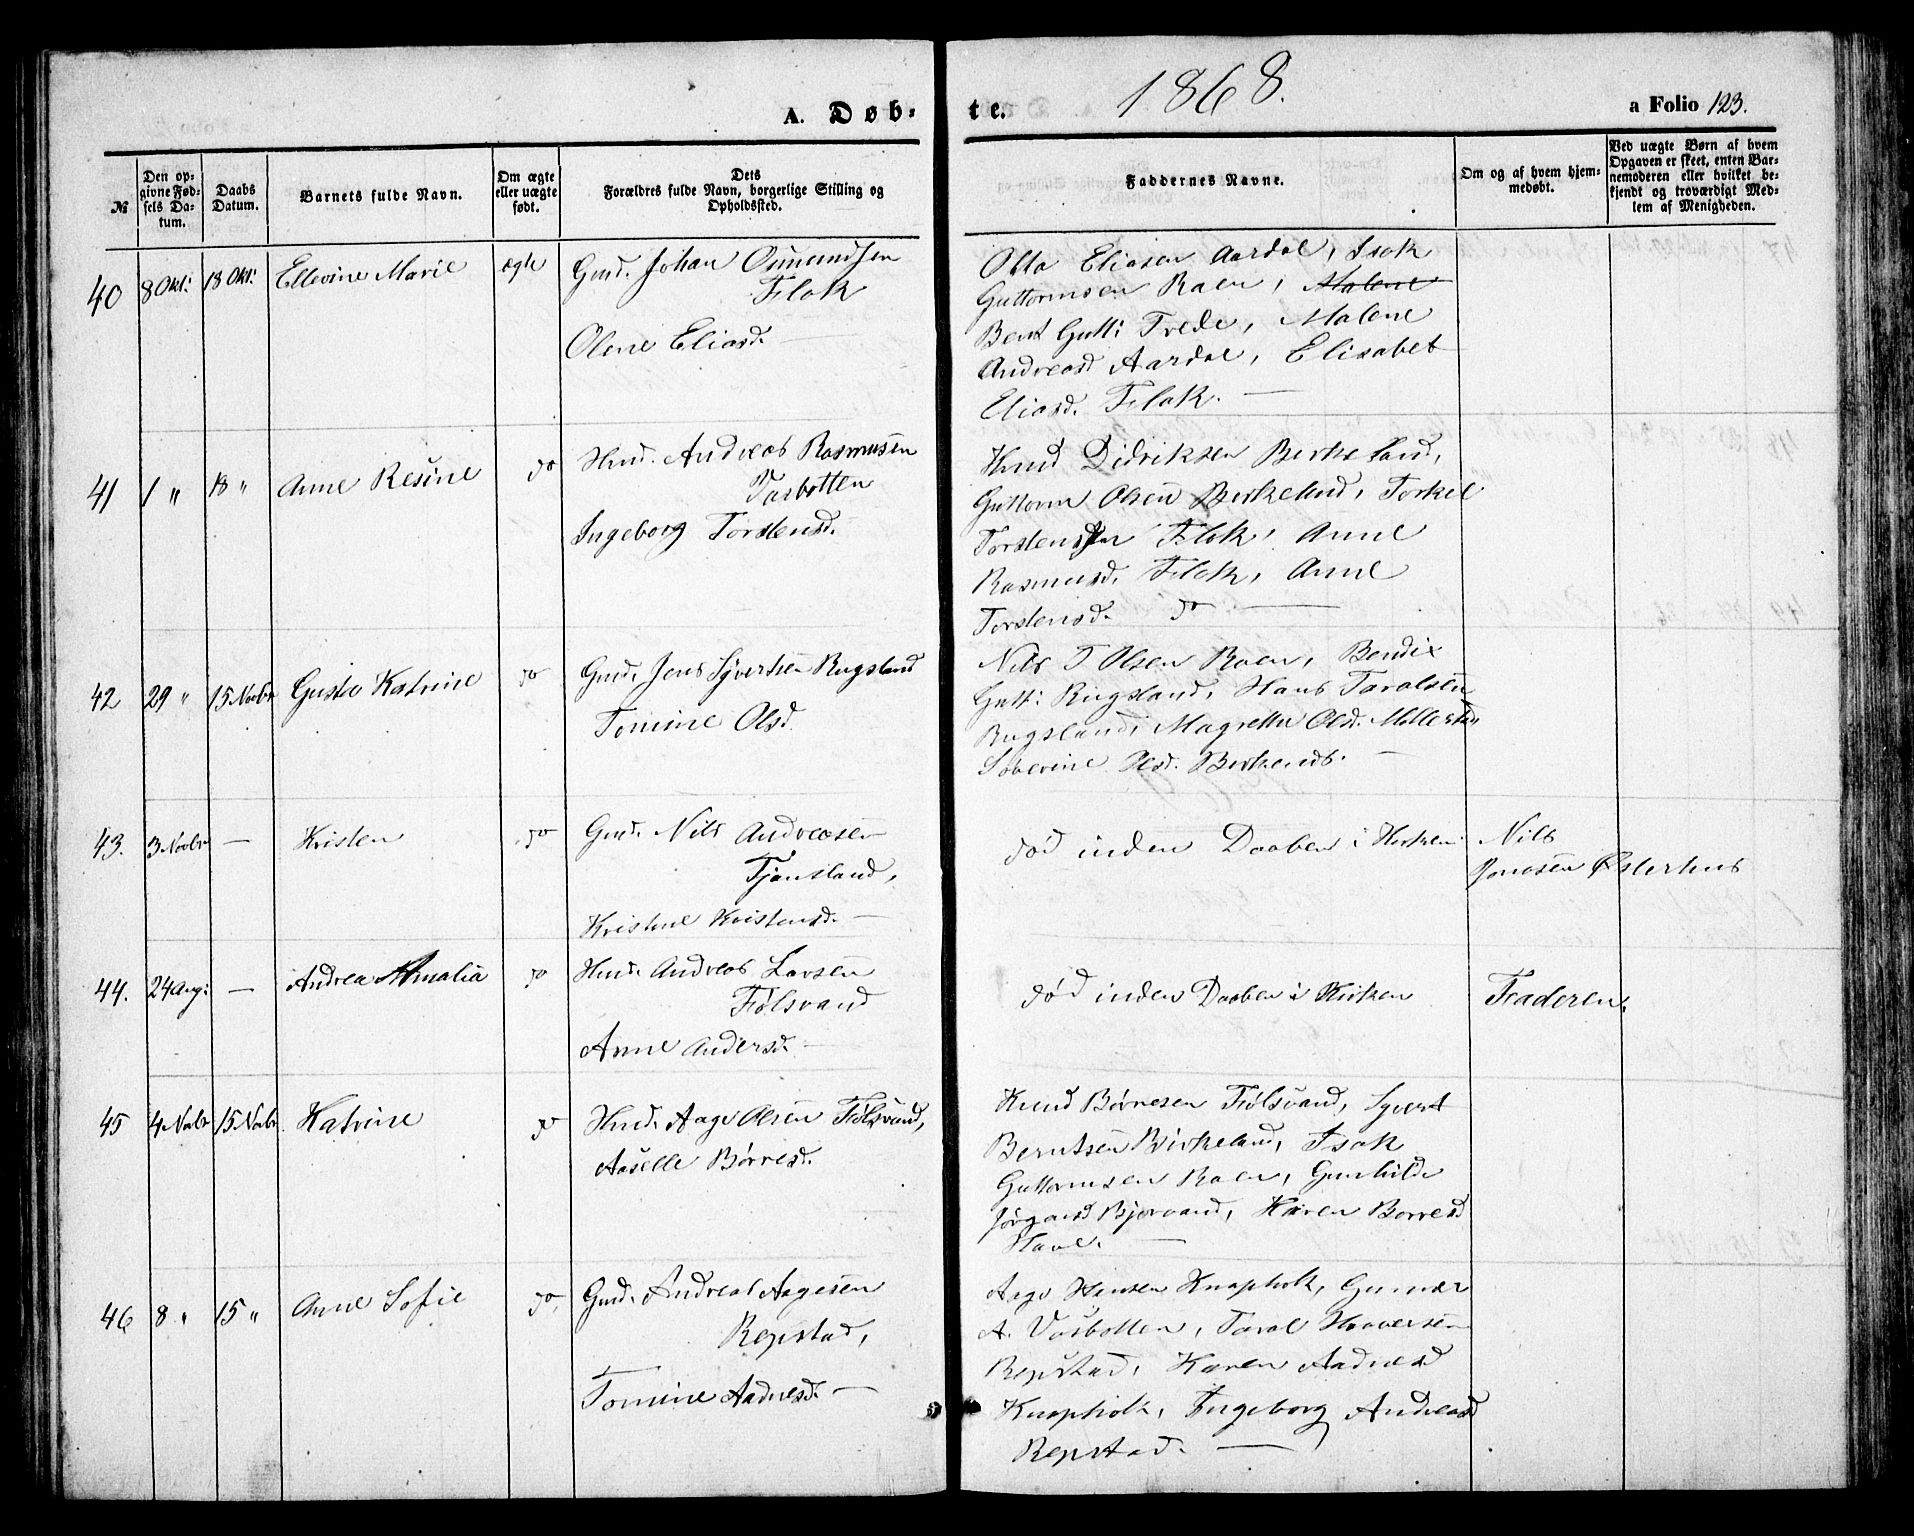 1868.
A. Døb-
te.
a Folio 123.
№
Den op-
givne Fød-
sels Da-
tum.
Daabs
Datum.
Barnets fulde Navn.
Om ægte
eller uægte
født.
Dets
Forældres fulde Navn, borgerlige Stilling og
Opholdssted.
Faddernes Navne.
Om og af hvem hjem-
medøbt.
Ved uægte Børn af hvem
Opgaven er skeet, enten Bar-
nemoderen eller hvilket be-
kjendt og troværdigt Med-
lem af Menigheden.
40 8 Okt: 18 Okt: Ellevine Marie ægte Gmd. Johan Osmundsen
Flak
Olene Eliasd. —
Otto Eliasen Aardal, Isak
Guttormsen Raen, Malene
Bent Gutt: Trede, Malene
Andreasd Aardal, Elisabet
Eliasd. Flak. —
41 1 " 18 " Anne Resine do Hmd. Andreas Rasmusen
Vasbotten
Ingeborg Torstensd.
Knud Didriksen Birkeland,
Guttorm Olsen Birkeland, Torkel
Torstensen Flak, Anne
Rasmusd. Flak, Anne
Torstensd. do —
42 29 " 15 Novbr Gusta Katrine do Gmd. Jens Syvertsen Rugsland
Tomine Olsd.
Nils T Olsen Raen, Bendix
Gutt: Rugsland, Hans Taralsen
Rugsland, Magrethe Olsd.
Severine Olsd. —
43. 3 Novbr — Kristen do Gmd. Nils Andreasen
Tjonsland,
Kristine Kristensd. —
død inden Daaben i Kirken
Nils
Jonasen Østerhus
44. 24 Aug: — Andrea Amalia do Hmd. Andreas Larsen
Fidsvand
Anne Andersd. —
død inden Daaben i Kirken
Faderen.
45 4 Novbr 15 Novbr. Katrine do Hmd. Aage Olsen Fidsvand,
Aaselle Børresd.
Knud Børresen Fidsvand, Syvert
Berntsen Birkeland, Isak
Guttormsen Raen, Gunhild
Jørgensd Bjorvand, Karen Børresd
—
46 8 " 15 " Anne Sofie do. Gmd. Andreas Aagesen
Repstad,
Tomine Aadnesd. —
Aage Hansen Knapholt, Gunder
A. Vasbotten, Taral Haaversen
Repstad, Karen Aadnesd
Knapholt, Ingeborg Andreasd
Repstad. —